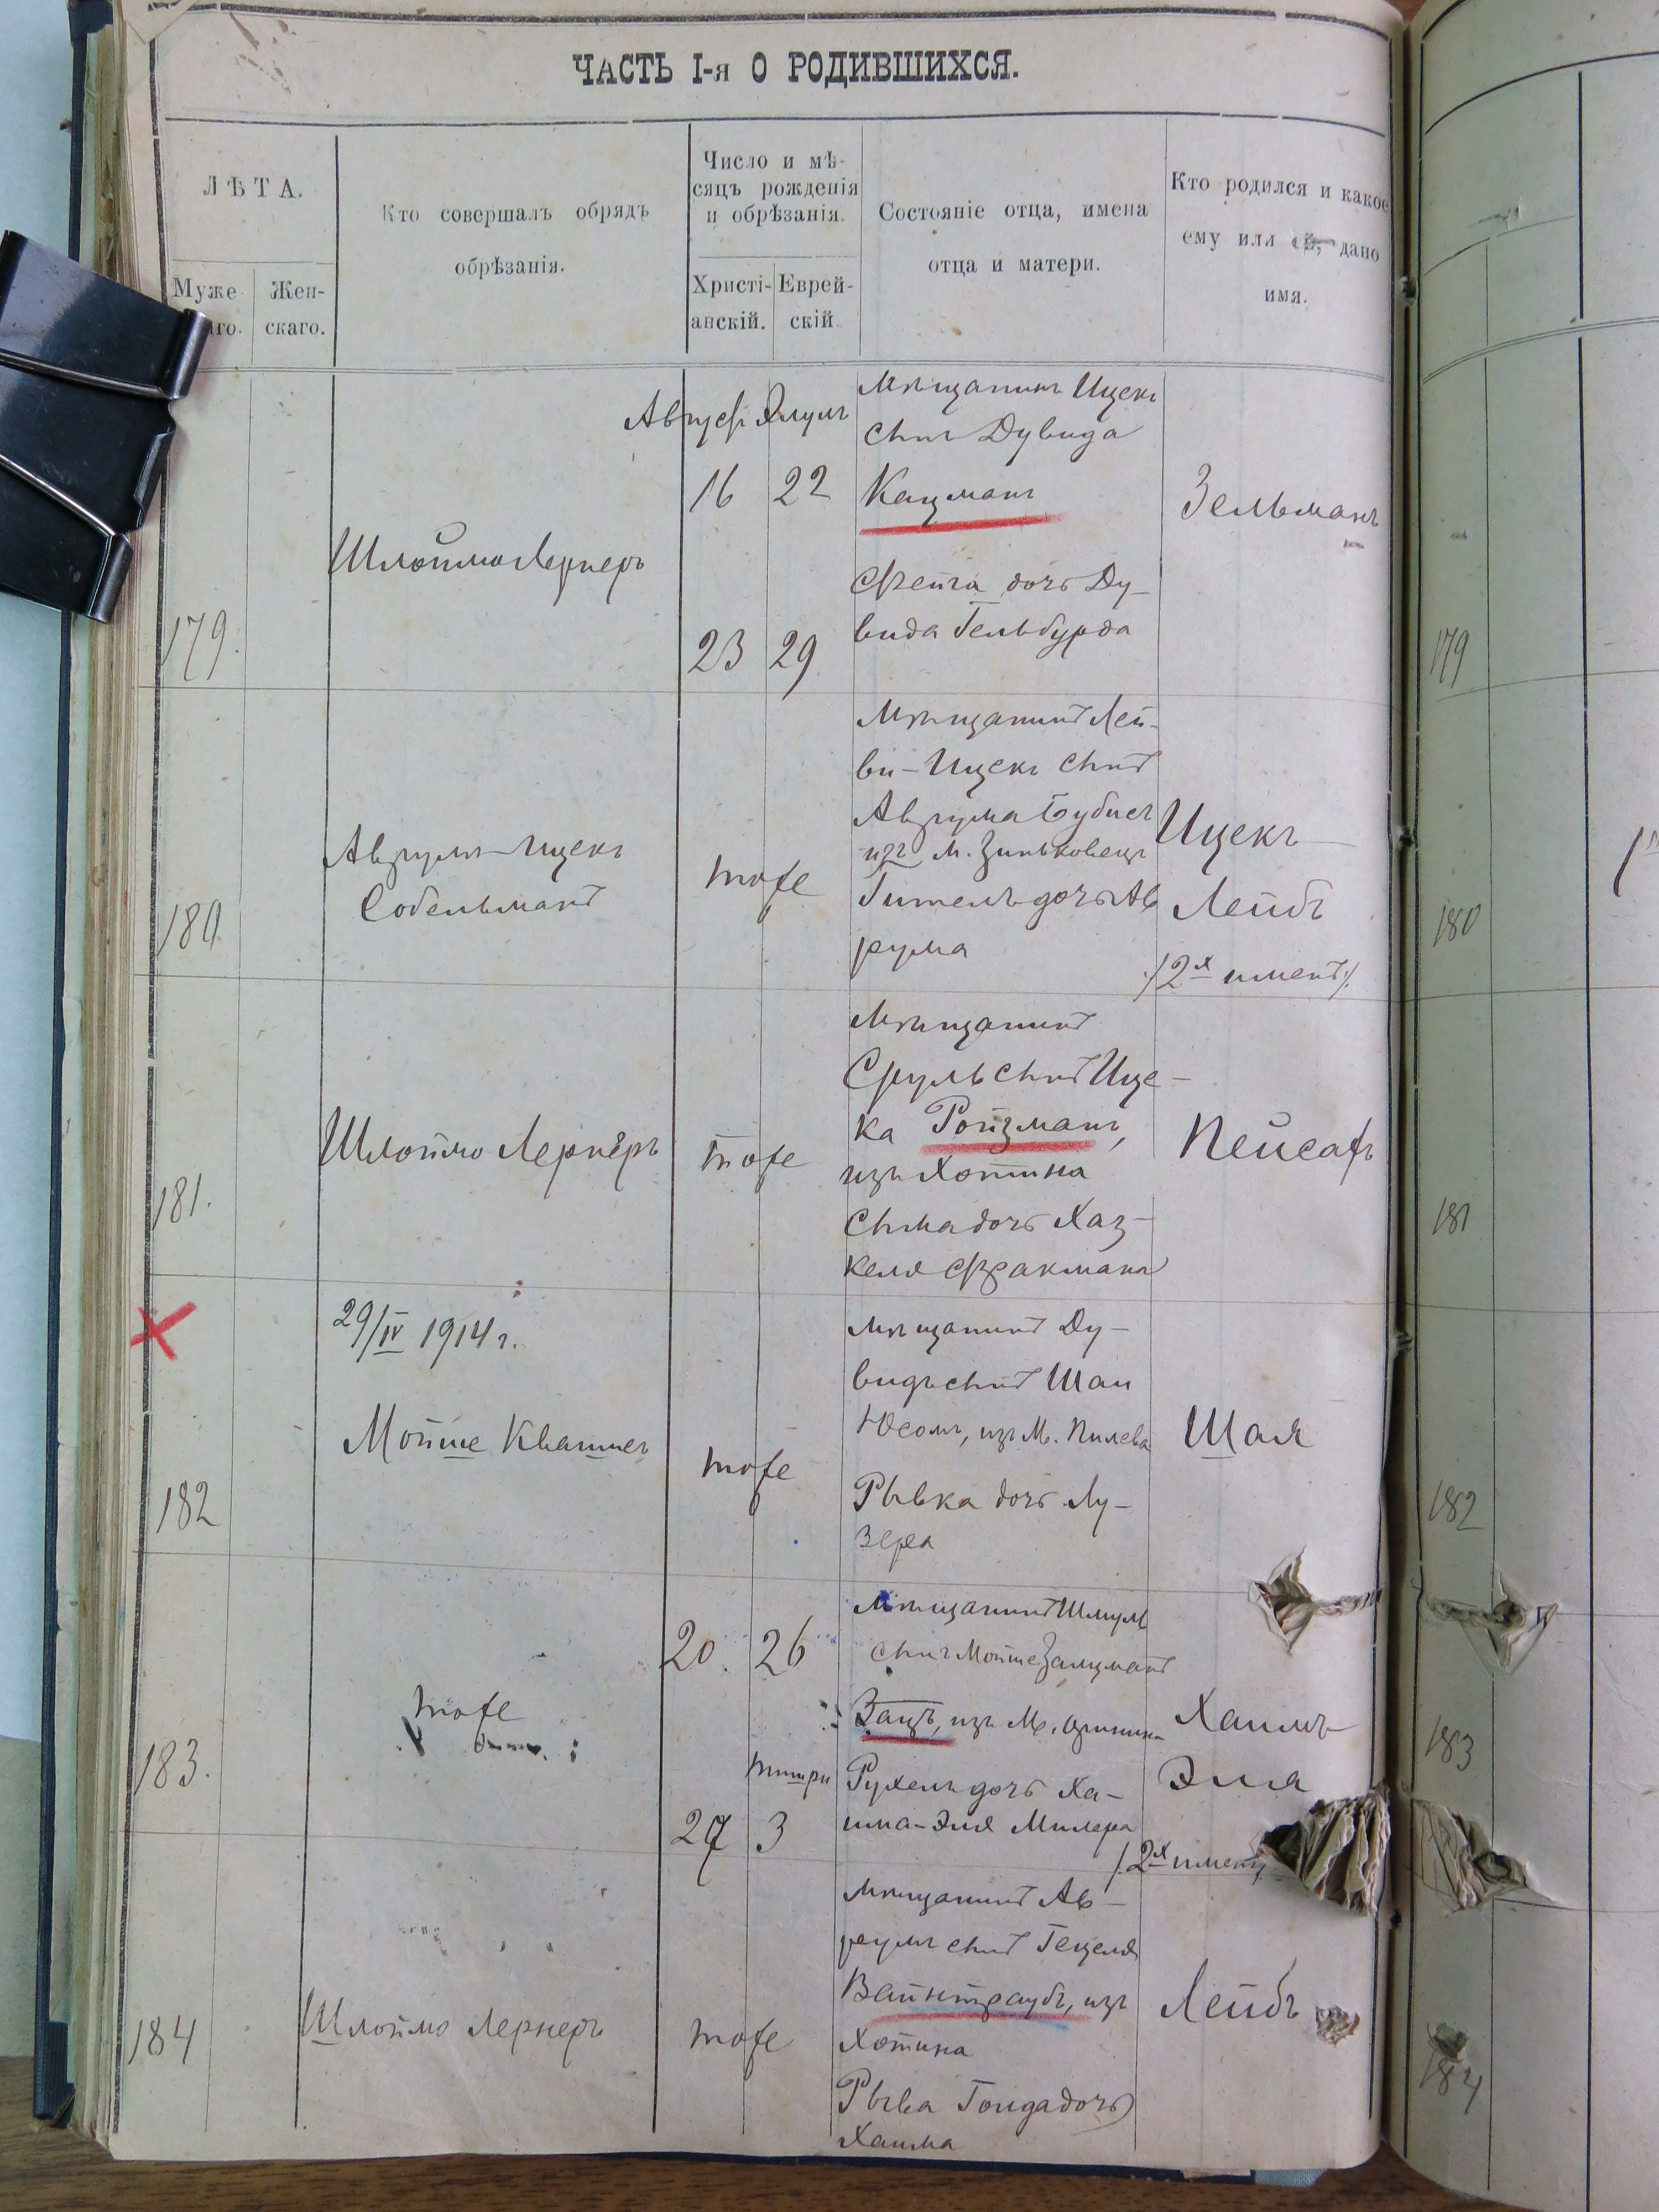 ЧАСТЬ I-я О РОДИВШИХСЯ.
ЛѢТА.
Муже
аго.
Жен-
скаго.
Кто совершалъ обрядъ
обрѣзанія.
Число и мѣ-
сяцъ рожденія
и обрѣзанія.
Христі-
анскій.
Еврей-
скій
Состояніе отца, имена
отца и матери.
Кто родился и какое
ему или ей, дано
имя.
179.
Шлоймо Лернеръ
Август Элулъ
16 22
23 29
Мѣщанинъ Ицекъ
сынъ Дувида
Кацманъ
Фейга дочь Ду-
вида Гельбурда
Зельманъ
179
180
Аврумъ-Ицекъ
Собельманъ
тоже
Мѣщанинъ Лей-
ви-Ицекъ сынъ
Аврума Бубисъ
изъ М. Зиньковецъ
Гитель дочь Ав
рума
Ицекъ
Лейбъ
/2х именъ/
180
181.
Шлоймо Лернеръ
тоже
Мѣщанинъ
Сруль сынъ Ице-
ка Ройзманъ,
изъ Хотина
Сыма дочь Хаз-
келя Фракмана
Пейсахъ
181
182
29/IV 1914 г.
Мойше Квашнеъ
тоже
Мѣщанинъ Ду-
видъ сынъ Шаи
Юсомъ, изъ М. Пилева
Рывка дочь Лу-
зера
Шая
182
183.
тоже
20. 26
тишри
27 3
Мѣщанинъ Шмуль
сынъ Мойше Залцманъ
Зацъ, изъ М.
Рухель дочь Ха-
има-Эля Милера
Хаимъ
Эля
/2х именъ
183
184
Шлоймо Лернеръ
тоже
Мѣщанинъ Ав-
румъ сынъ Гецеля
Вайнтраубъ, изъ
Хотина
Рыва Голда дочь
Хаима
Лейбъ
184